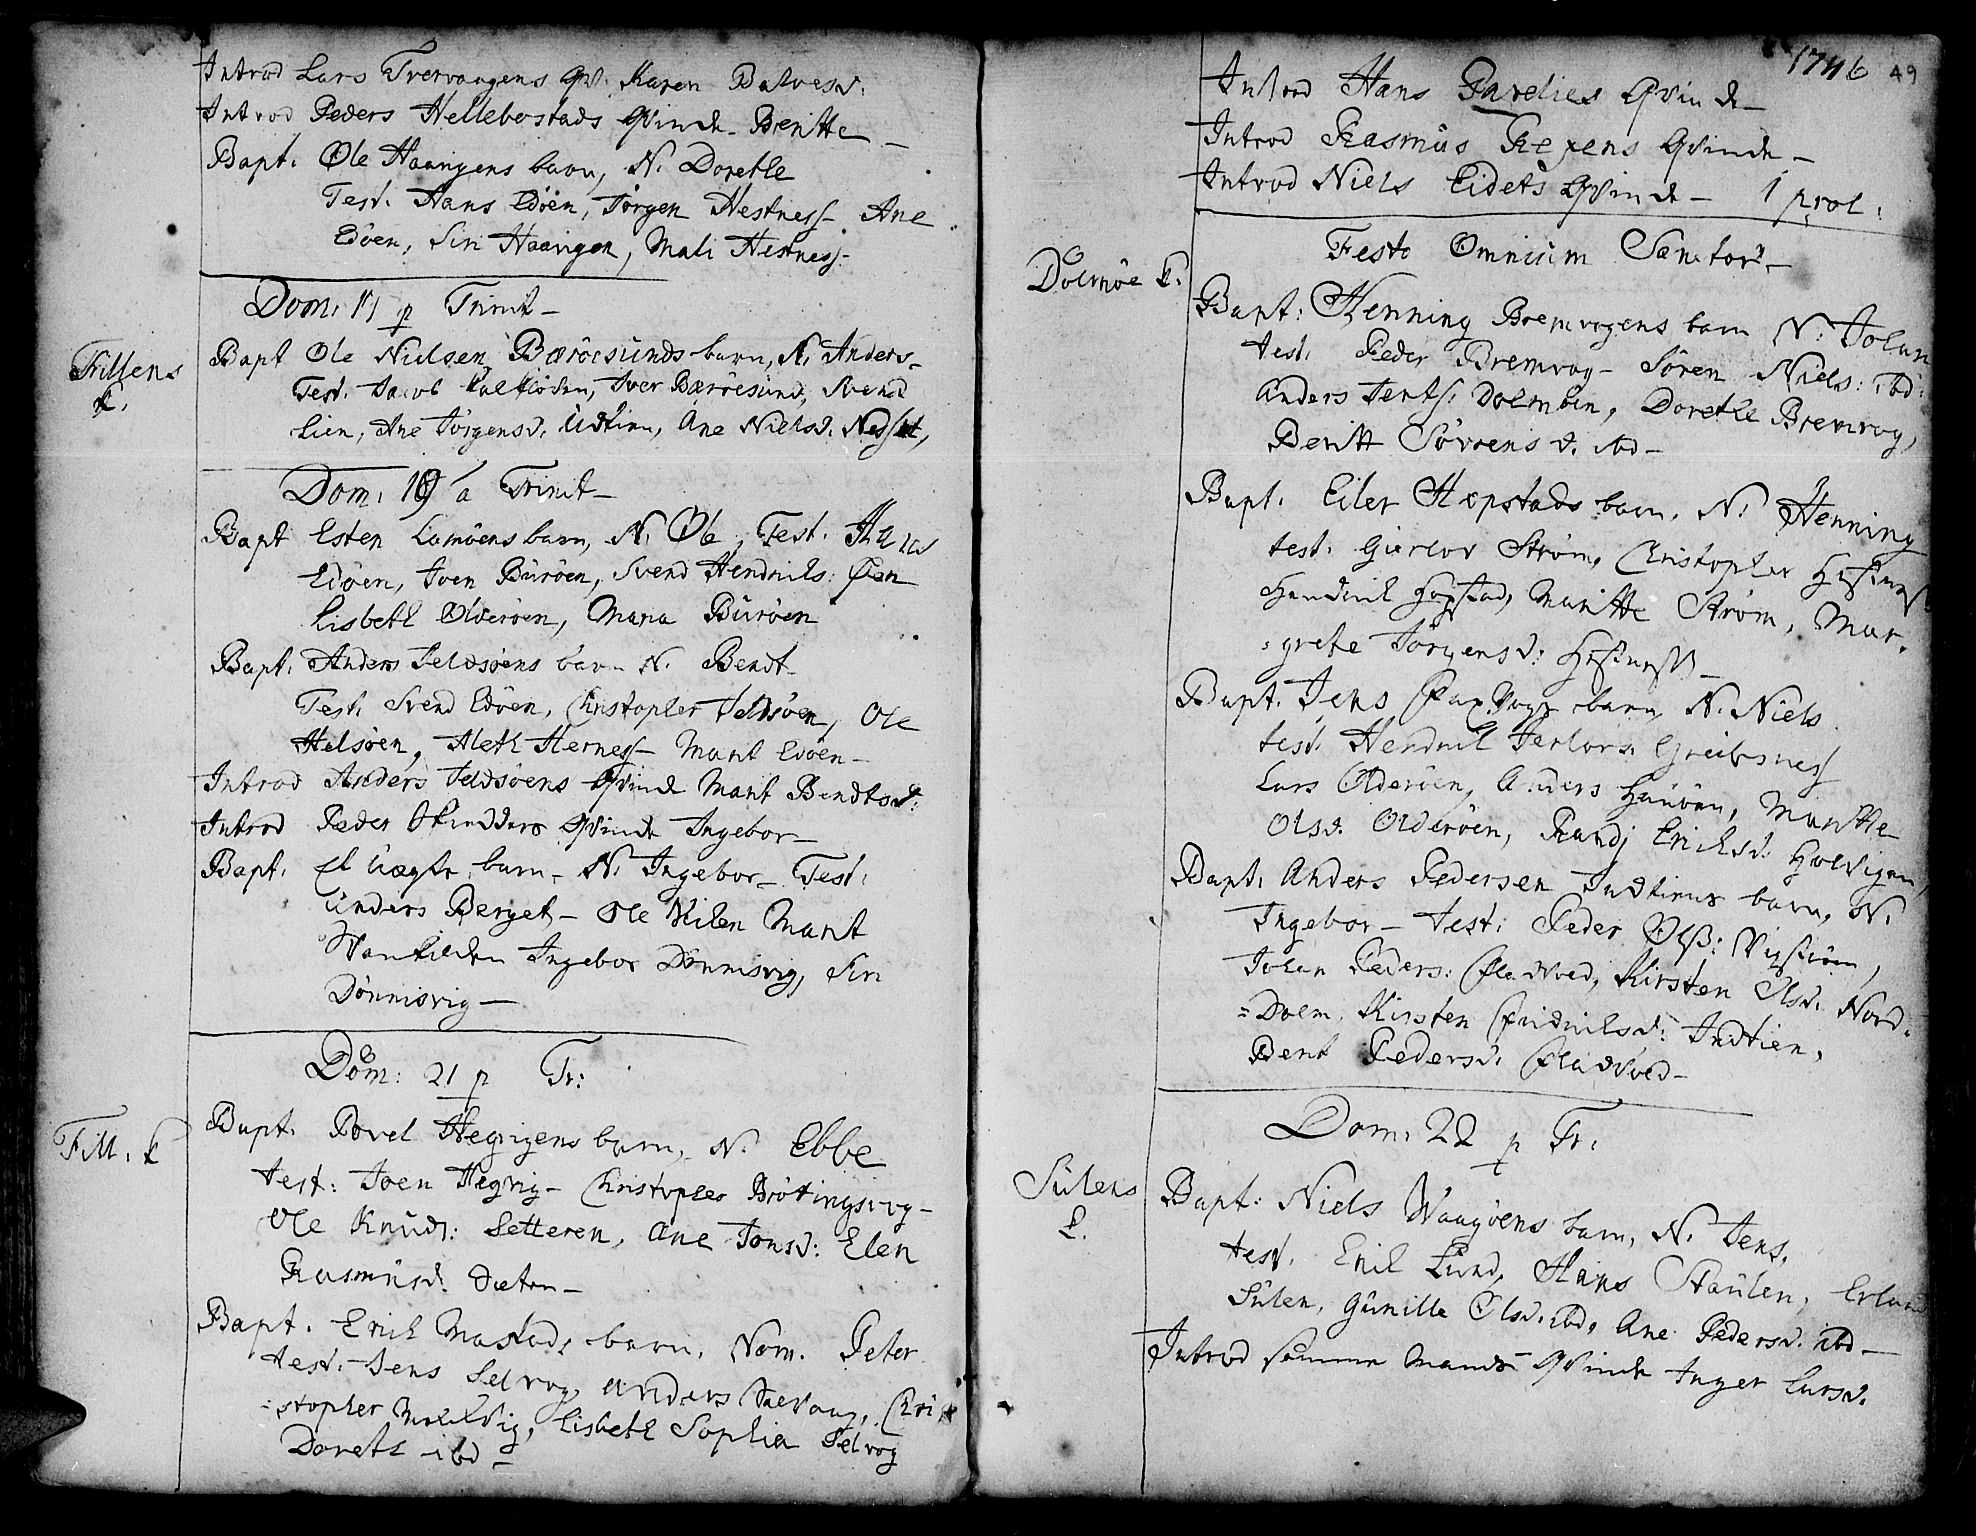 Introd Lars Tvervaagens Qvi: Karen Baltzesd:
Introd Peders Hellebostads Qvinde Beritte
Bapt. Ole Haavigens barn, N. Dorethe
Test. Hans Edöen, Jörgen Hestness. Ane
Edöen, Siri Haavigen, Mali Hestness.
Dom. 17 p Trinit
Fillens
k.
Bapt Ole Nielsen Bæröesunds barn, N. Anders
Test. Jacob Iver Bæröesund, Svend
Lien, Ane Jörgensd. Udtian, Ane Nielsd. Nedset,
Dom. 19 a Trinit
Bapt Esten Lamöens barn, N. Ole, Test. Hans
Edöen, Joen Buröen, Svend Hendriks: Öen
Lisbeth Olderöen, Maria Buröen
Bapt. Anders Feldsöens barn N. Bendt
Test. Svend Edöen, Christopher Feldsöen, Ole
Helsöen, Aleth Herness Marit Edöen
Introd Anders Feldsöens Qvinde Marit Bendtsd:
Introd Peder Qvinde Ingebor
Bapt. et uægte barn N. Ingebor Test.
Anders Berget Ole Kilen Marit
Ingebor Dönnisvig, Siri
Dönnisvig
Dom: 21 p Tr:
Fill. k
Bapt. Povel Hegvigens barn, N. Ebbe
test: Joen Hegvig Christopher Brötingsvog
Ole Knuds: Setteren, Ane Jonsd: Elen
Rasmusd: Sæter
Bapt. Erick Mastads barn, Nom. Peter
test. Jens Selvog, Anders Christopher
Lisbeth Sophia Selvog
Doreth ibd
1746 49
Introd Hans Parelies Qvinde
Introd Rasmus Refsens Qvinde
Introd Niels Eidets Qvinde 1 prol:
Festo Omnium Sanctor
Dolmöe k.
Bapt: Henning Bremvogens barn N. Johan
test. Peder Bremvog Sören Niels: ibd:
Anders Jents: Dolmben, Dorethe Bremvog,
Beritt Sörrens d. ibd
Bapt. Eiler Hopstads barn, N. Henning
test. Gierlov Ström, Christopher Hestnes
Hendrick Hopstad, Maritte Ström, Mar
=grete Jörgensd: Hestness
Bapt. Jens barn N. Niels
test. Hendrick Jerlovs: Greibsness
Lars Olderöen, Anders Hauöen, Maritte
Olsd. Olderöen, Randj Ericksd: Holvigen,
Bapt. Anders Pedersen Indtians barn, N.
Ingebor test: Peder Ols:
Johan Peders: Fladvoed, Kirsten Olsd. Nord
=Dolm, Kirsten Fridriksd: Indtien,
Berit Pedersd. Fladvoed
Dom. 22 p Tr.
Sulens
k.
Bapt: Niels Vaagöens barn, N. Jens.
test. Erick Lund, Hans Staulen, Erland
Sulen, Gunille Olsd. ibd, Ane Pedersd. ibd
Introd samme Mands Qvinde Inger Larsd.